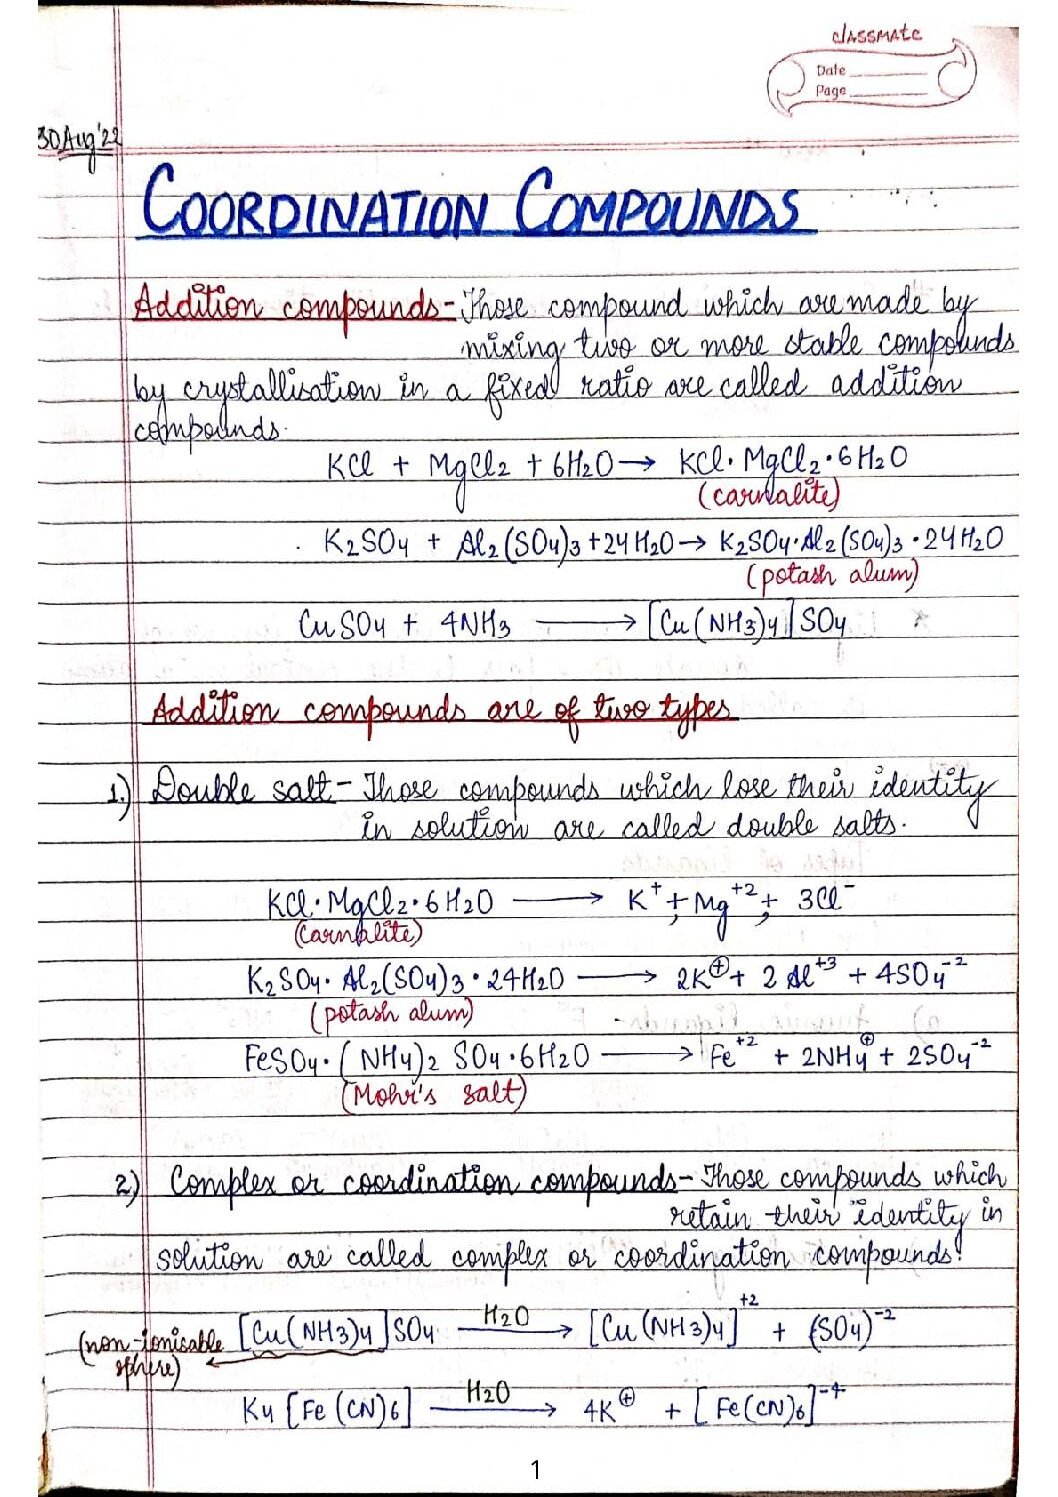 classmate
Date
Page
30 Aug'22
COORDINATION COMPOUNDS
Addition compounds - Those compound which are made by
mixing two or more stable compounds
by crystallisation in a fixed ratio are called addition
compounds.
KCl + MgCl2 + 6H2O → KCl·MgCl2·6H2O
(carnalite)
K2SO4 + Al2(SO4)3 + 24H2O → K2SO4·Al2(SO4)3·24H2O
(potash alum)
CuSO4 + 4NH3 → [Cu(NH3)4]SO4
Addition compounds are of two types
1.) Double salt - Those compounds which lose their identity
in solution are called double salts.
KCl·MgCl2·6H2O → K⁺ + Mg⁺² + 3Cl⁻
(Carnalite)
K2SO4·Al2(SO4)3·24H2O → 2K⊕ + 2Al⁺³ + 4SO4⁻²
(potash alum)
FeSO4·(NH4)2 SO4·6H2O → Fe⁺² + 2NH4⊕ + 2SO4⁻²
(Mohr's salt)
2) Complex or coordination compounds - Those compounds which
retain their identity in
solution are called complex or coordination compounds.
[Cu(NH3)4]SO4 H2O → [Cu(NH3)4]⁺² + (SO4)⁻²
(non-ionisable
sphere)
K4[Fe(CN)6] H2O → 4K⊕ + [Fe(CN)6]⁻⁴
1